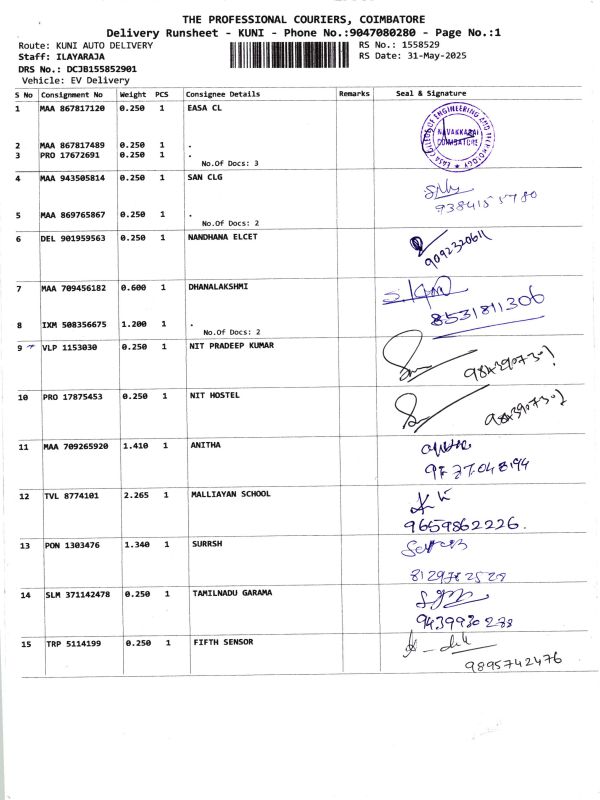 THE PROFESSIONAL COURIERS, COIMBATORE
Delivery Runsheet - KUNI - Phone No.:9047080280 - Page No.:1
Route: KUNI AUTO DELIVERY
RS No.: 1558529
Staff: ILAYARAJA
RS Date: 31-May-2025
DRS No.: DCJB155852901
Vehicle: EV Delivery
S No Consignment No Weight PCS Consignee Details Remarks Seal & Signature
1 MAA 867817120 0.250 1 EASA CL
2 MAA 867817489 0.250 1 .
3 PRO 17672691 0.250 1 .
No.Of Docs: 3
EASA COLLEGE OF ENGINEERING AND TECHNOLOGY
NAVAKKARAI
COIMBATORE
4 MAA 943505814 0.250 1 SAN CLG
5 MAA 869765867 0.250 1 .
No.Of Docs: 2
6 DEL 901959563 0.250 1 NANDHANA ELCET
9092320611
7 MAA 709456182 0.600 1 DHANALAKSHMI
8531811306
8 IXM 508356675 1.200 1 .
No.Of Docs: 2
9 VLP 1153030 0.250 1 NIT PRADEEP KUMAR
10 PRO 17875453 0.250 1 NIT HOSTEL
11 MAA 709265920 1.410 1 ANITHA
12 TVL 8774101 2.265 1 MALLIAYAN SCHOOL
9659862226.
13 PON 1303476 1.340 1 SURRSH
14 SLM 371142478 0.250 1 TAMILNADU GARAMA
15 TRP 5114199 0.250 1 FIFTH SENSOR
9895742476